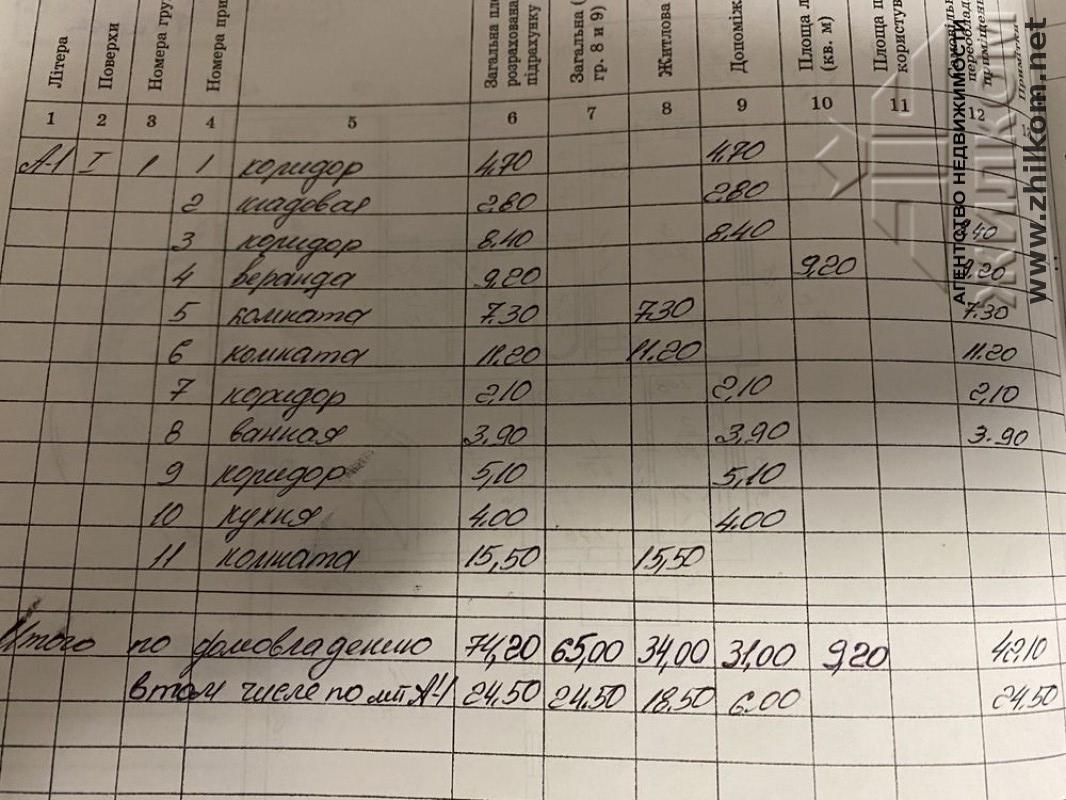 Літера Поверхи Номери гру Номери при Загальна пло розрахована підрахунку Загальна ( гр. 8 и 9) Житлова Допоміж Площа л (кв. м) Площа п користув
1 2 3 4 5 6 7 8 9 10 11 12
А-1 I 1 1 коридор 4,70 4,70
2 кладовая 2,80 2,80
3 коридор 8.40 8.40 8,40
4 веранда 9,20 9,20 9,20
5 комната 7.30 7.30 7.30
6 комната 11.20 11.20 11.20
7 коридор 2,10 2,10 2,10
8 ванная 3.90 3.90 3.90
9 коридор 5,10 5,10
10 кухня 4.00 4.00
11 комната 15,50 15,50
Итого по домовладению 74,20 65,00 34,00 31,00 9,20 42,10
в том числе по лит А'-1 24,50 24,50 18,50 6.00 24,50
АГЕНТСТВО НЕДВИЖИМОСТИ
ЖИЛКОМ
www.zhilkom.net